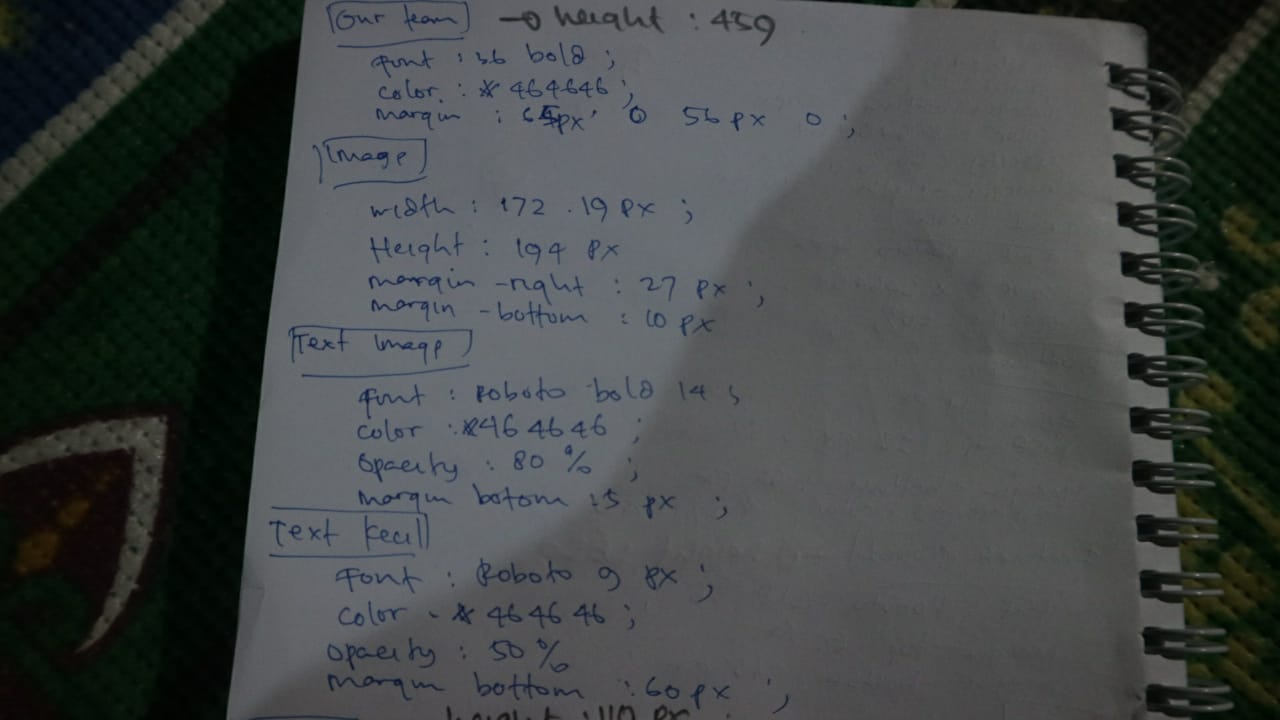 Our team → height : 459
font : 36 bold ;
color : # 464646 ;
margin : 65px 0 56 px 0 ;
Image
width : 172 . 19 px ;
Height : 194 px
margin -right : 27 px ;
margin -bottom : 10 px
Text Image
font : Roboto bold 14 ;
color : #46 46 46 ;
opacity : 80 % ;
margin botom : 5 px ;
Text kecil
Font : Roboto 9 px ;
color - # 46 46 46 ;
opacity : 50 %
margin bottom : 60 px ;
height : 110 px